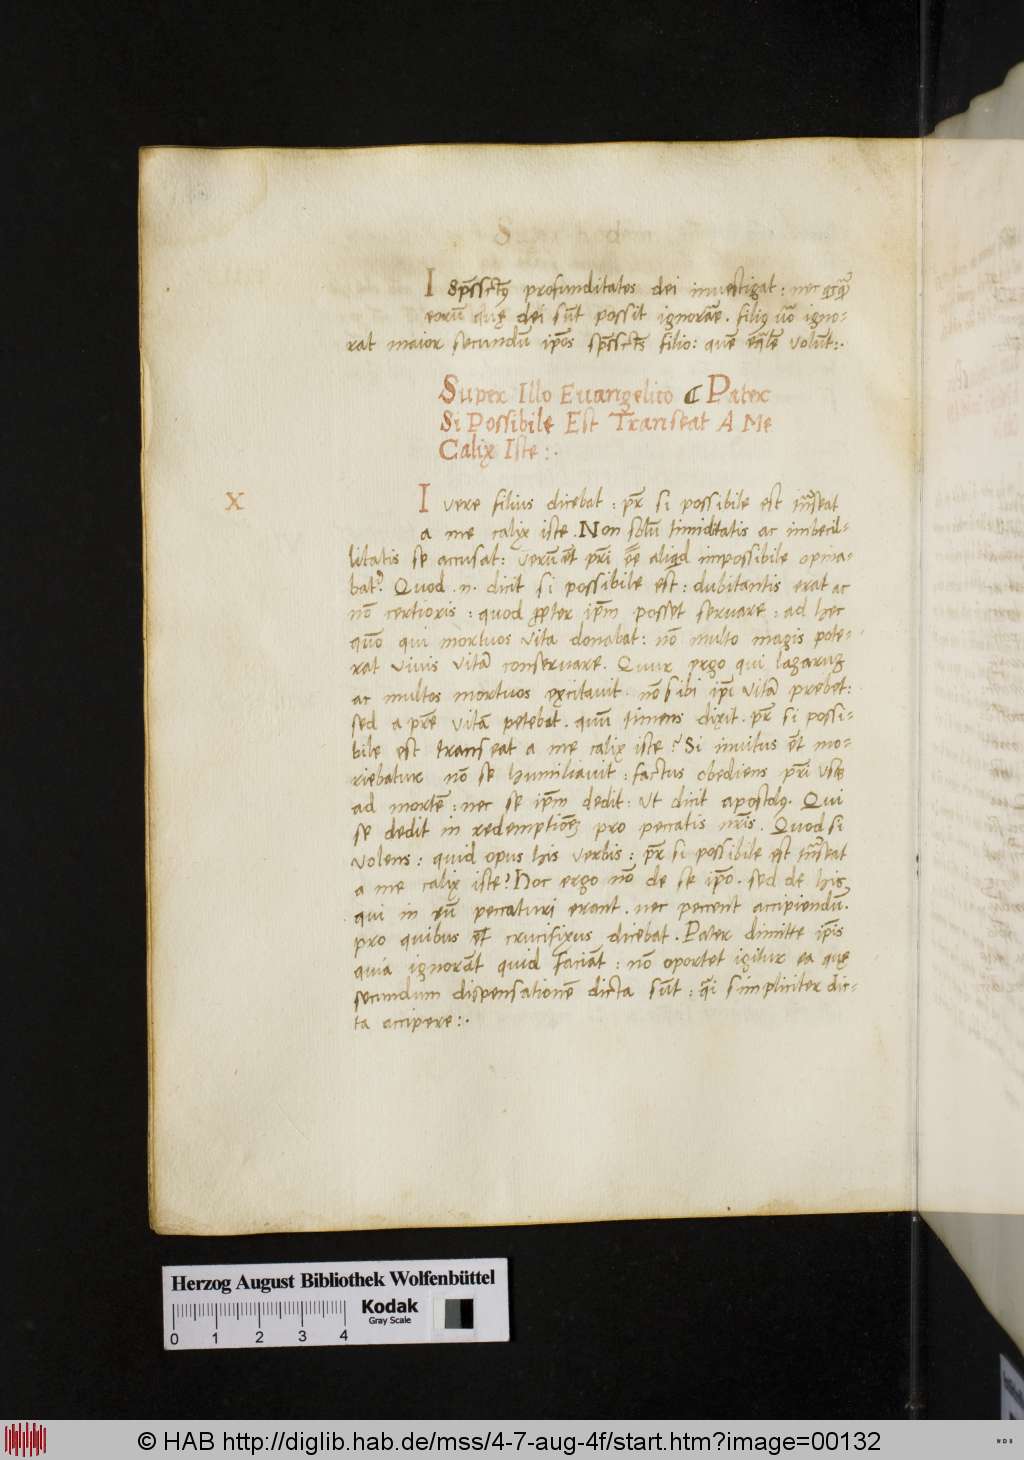 I sp̄ssct᷒ profunditates dei inuestigat : nec
eorū quę dei sūt possit ignorāre. filiꝰ uō igno-
rat maior secundū ip̄os sp̄ssct̄s filio: quē volūt:.
Super Illo Euangelico ₡ Pater
Si Possibile Est Transeat A Me
Calix Iste :.
X
I vere filius dicebat : pr̄ si possibile est trāseat
a me calix iste. Non solū timiditatis ac imbecil-
litatis se accusat : verū ēt pr̄i eē̄ aliqd impossibile opina-
bat᷒. Quod .n. dicit si possibile est : dubitantis erat ac
nō certioris : quod ꝓpter ip̄m posset seruare : ad hec
quō qui mortuos vita donabat : nō multo magis pote-
rat viuis vitā conseruare. Quur ergo qui lazaruꝫ
ac multos mortuos excitauit. nō sibi ip̄i vitā prebet:
sed a pr̄e vitā petebat. quū timens dixit. pr̄ si possi-
bile est transeat a me calix iste? Si inuitus ēt mo-
riebatur nō se humiliauit : factus obediens pr̄i vsqꝫ
ad mortē : nec se ip̄m dedit : vt dicit apostolꝰ. Qui
se dedit in redemptionēꝫ pro peccatis nr̄is. Quod si
volens : quid opus his verbis : pr̄ si possibile est trāseat
a me calix iste? Hoc ergo nō de se ip̄o. sed de his
qui in eū peccaturi erant. nec peccent accipiendū.
pro quibus et crucifixus dicebat. Pater dimitte ip̄is
quia ignorāt quid faciāt : nō oportet igitur ea quę
secundum dispensationē dicta sūt : q̄i simpliciter dic-
ta accipere :.
Herzog August Bibliothek Wolfenbüttel
Kodak
Gray Scale
0 1 2 3 4
© HAB http://diglib.hab.de/mss/4-7-aug-4f/start.htm?image=00132